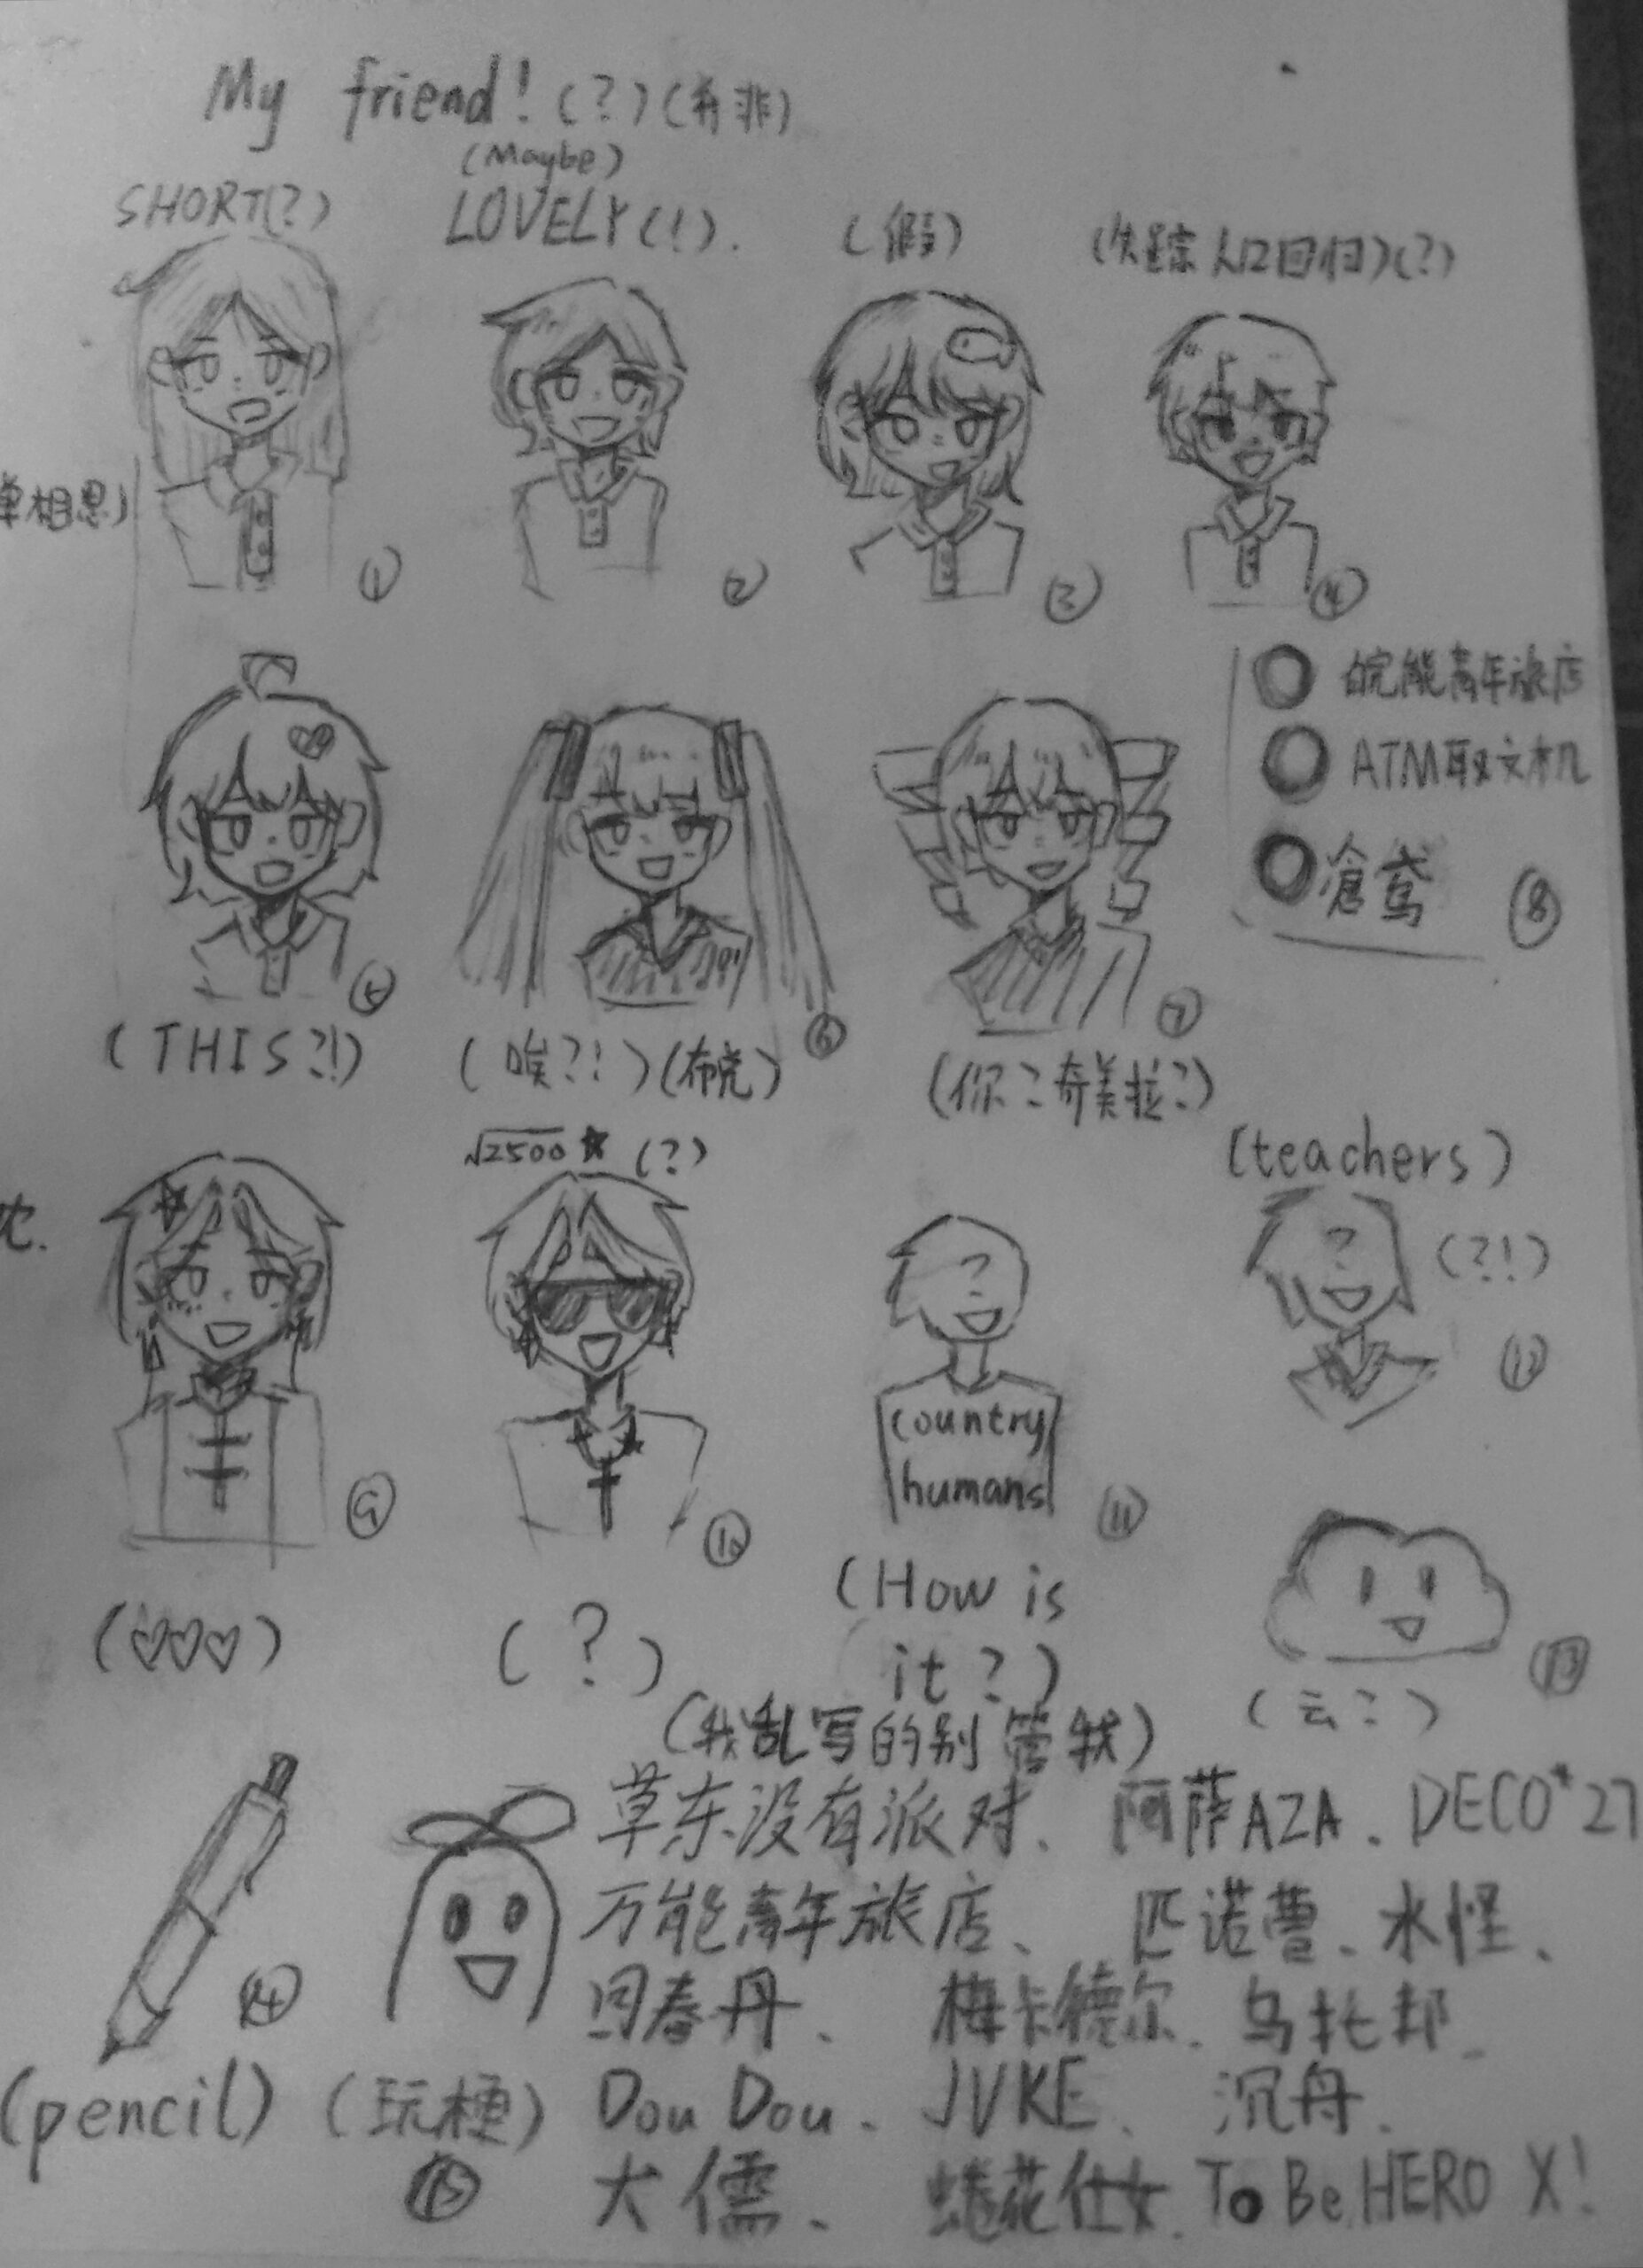 My friend! (?) (并非)
(Maybe)
SHORT(?)
LOVELY (!).
(假)
(失踪人口回归)(?)
单相思)
①
②
③
④
皖能青年旅店
ATM取文机
滄鸢
⑧
⑥
⑦
(THIS?!)
(唉?!)(布克)
(你?奇美拉?)
√2500 ★ (?)
(teachers)
(?!)
?
?
country
humans
⑨
⑩
⑪
⑫
(♡♡♡)
(?)
(How is
it?)
⑬
(云?)
(我乱写的别管我)
草东没有派对、阿萨AZA、DECO*27
万能青年旅店、匹诺曹、水怪、
回春丹、梅卡德尔、乌托邦、
⑭
(pencil)
(玩梗)
Dou Dou、JVKE、沉舟、
⑮
大儒、蜷花仕女、To Be HERO X!